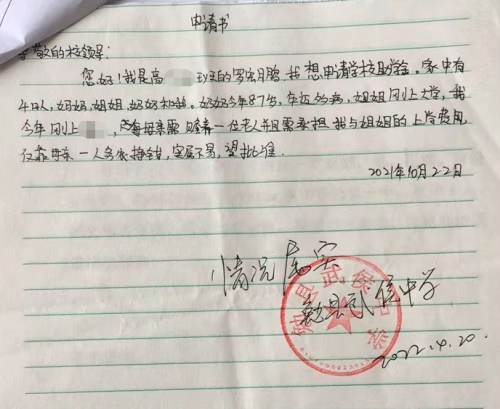 申请书
尊敬的校领导:
您好!我是高 班的罗宾月脂,我想申请学校助学金。家中有
4口人,妈妈,姐姐,奶奶和我。奶奶今年87岁,年迈多病,姐姐刚上大学,我
今年刚上 ,母亲需赡养一位老人并且需承担我与姐姐的上学费用,
仅靠母亲一人务农挣钱,实属不易,望批准.
2021年10月22日
情况属实
勉县武侯中学
2022.4.20.
勉县武侯中学